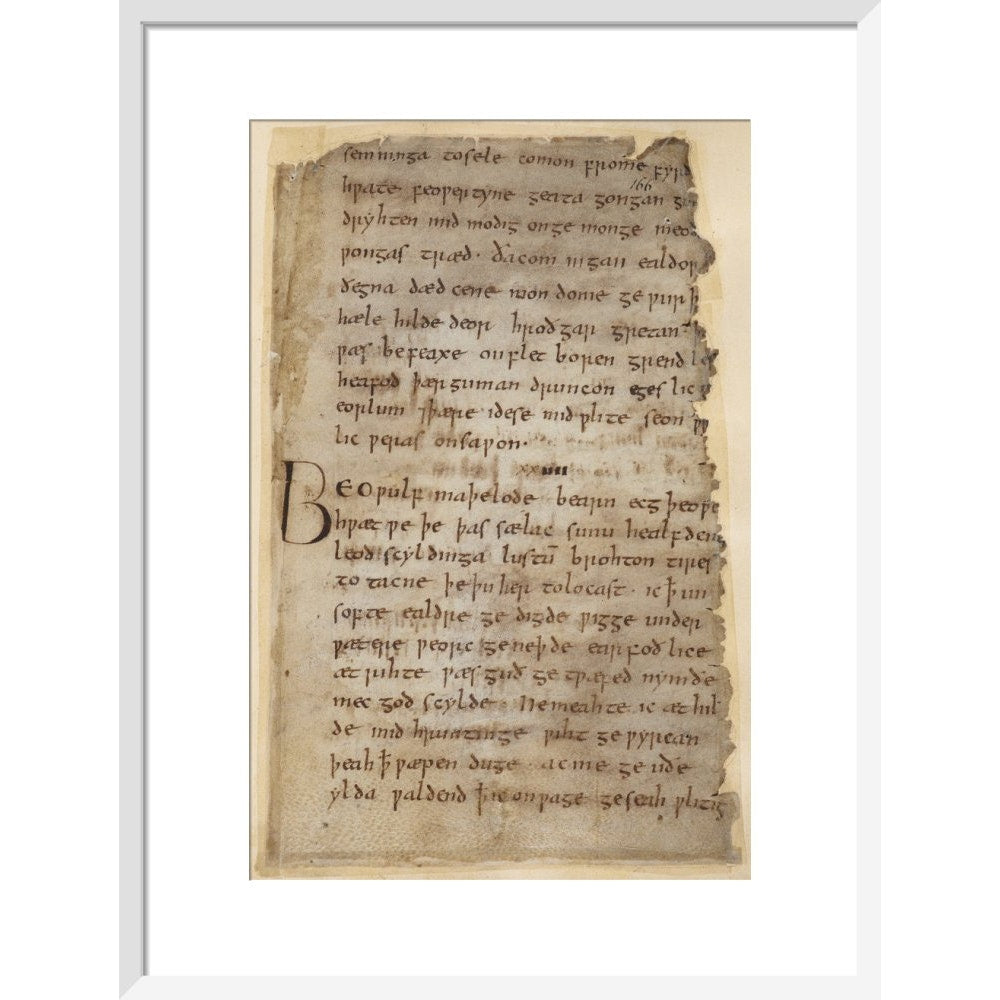 semninga to sele comon frome fyrd
166
hƿate feoƿertyne geata gongan
dryhten mid modig on ge monge meo
ƿongas træd · ða com in gan ealdor
ðegna dæd cene mon dome ge ƿurþ
hæle hilde deor hroðgar gretan
ƿæs be feaxe on flet boren grendle
heafod þær guman druncon eges lic
eorlum ⁊ þære idese mid ƿlite seon
lic ƿeras on saƿon ·
xxiiii
BEOƿulf maþelode bearn ecg þeoƿe
hƿæt ƿe þe þas sælac sunu healfdene
leod scyldinga lustū brohton tires
to tacne þe þu her to locast · ic ꝥ un
softe ealdre ge digde ƿigge under
ƿætere ƿeorc ge neþde earfoð lice
æt rihte ƿæs guð ge tƿæfed nymðe
mec god scylde · Ne meahte ic æt hil
de mid hruntinge ƿiht ge ƿyrcan
þeah ꝥ ƿæpen duge · ac me ge uðe
ylda ƿaldend ꝥ ic on ƿage ge seah ƿlitig